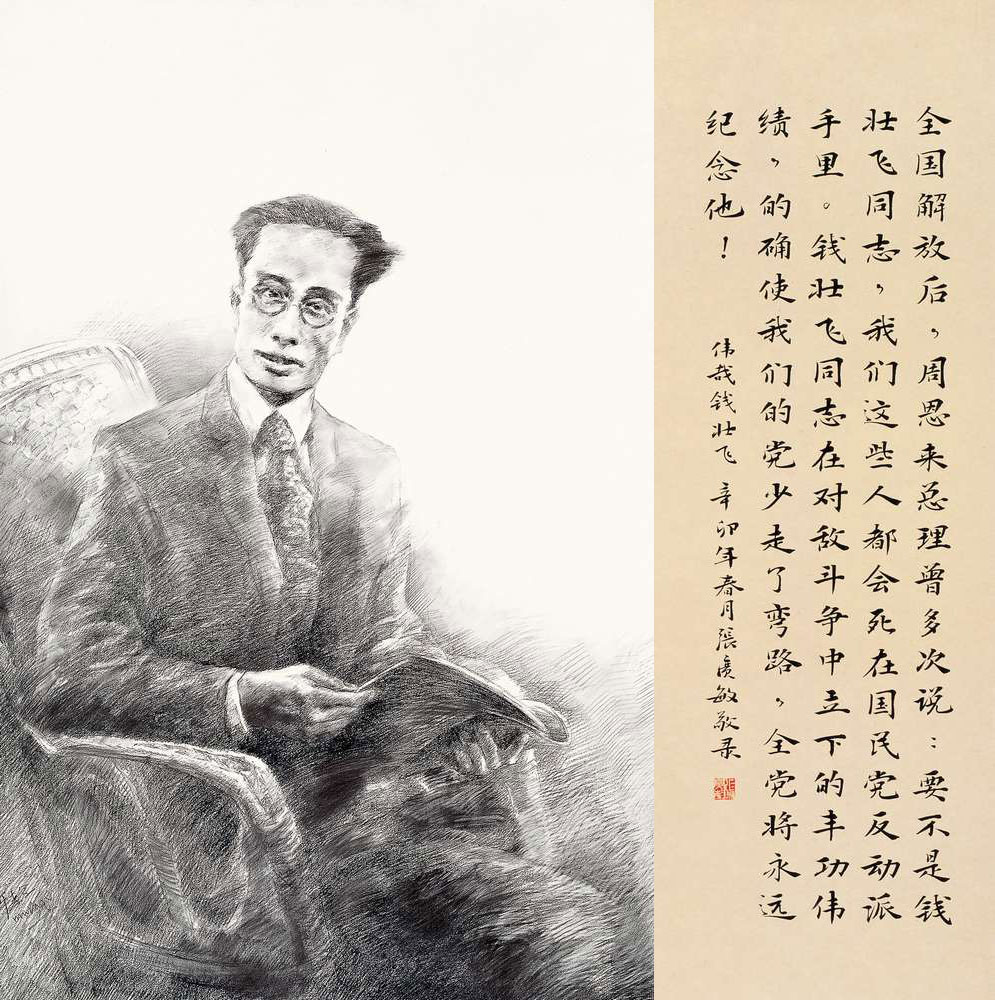 全国解放后，周恩来总理曾多次说：要不是钱
壮飞同志，我们这些人都会死在国民党反动派
手里。钱壮飞同志在对敌斗争中立下的丰功伟
绩，的确使我们的党少走了弯路，全党将永远
纪念他！
伟哉钱壮飞 辛卯年春月張廣敏敬录